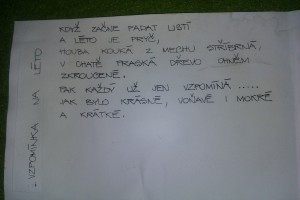 KDYŽ ZAČNE PADAT LISTÍ
A LÉTO JE PRYČ,
HOUBA KOUKÁ Z MECHU STŘÍBRNÁ,
V CHATĚ PRASKÁ DŘEVO OHNĚM
ZKROUCENÉ.
PAK KAŽDÝ UŽ JEN VZPOMÍNÁ .....
JAK BYLO KRÁSNÉ, VOŇAVÉ I MOKRÉ
A KRÁTKÉ.
- VZPOMÍNKA NA LÉTO